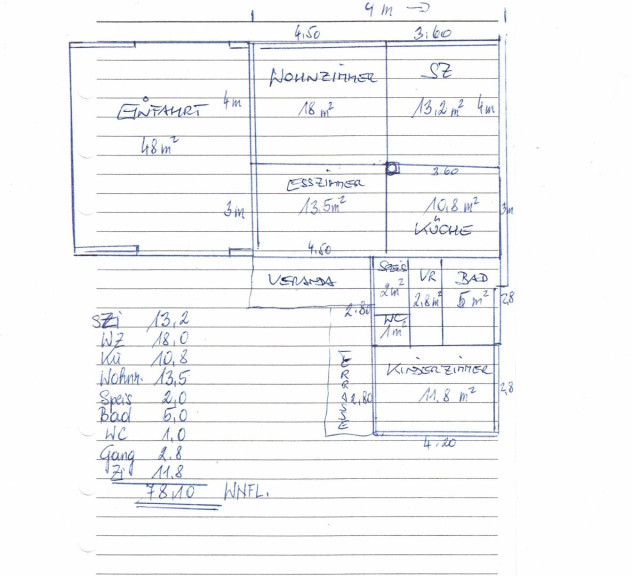 4 m →
4.50 3.60
WOHNZIMMER SZ
EINFAHRT 4m 18 m² 13,2 m² 4m
48 m²
ESSZIMMER 3.60
3m 13.5 m² 10,8 m² 3m
KÜCHE
4.50
VERANDA SPEIS VR BAD
2 m² 2,8 m² 5 m² 2,8
2.80 WC
1 m²
TERRASSE
KINDERZIMMER
2,80 11.8 m² 2,8
4.20
SZi 13,2
WZ 18,0
Kü 10,8
Wohnr. 13,5
Speis 2,0
Bad 5,0
WC 1,0
Gang 2.8
Zi 11.8
78,10 WNFL.